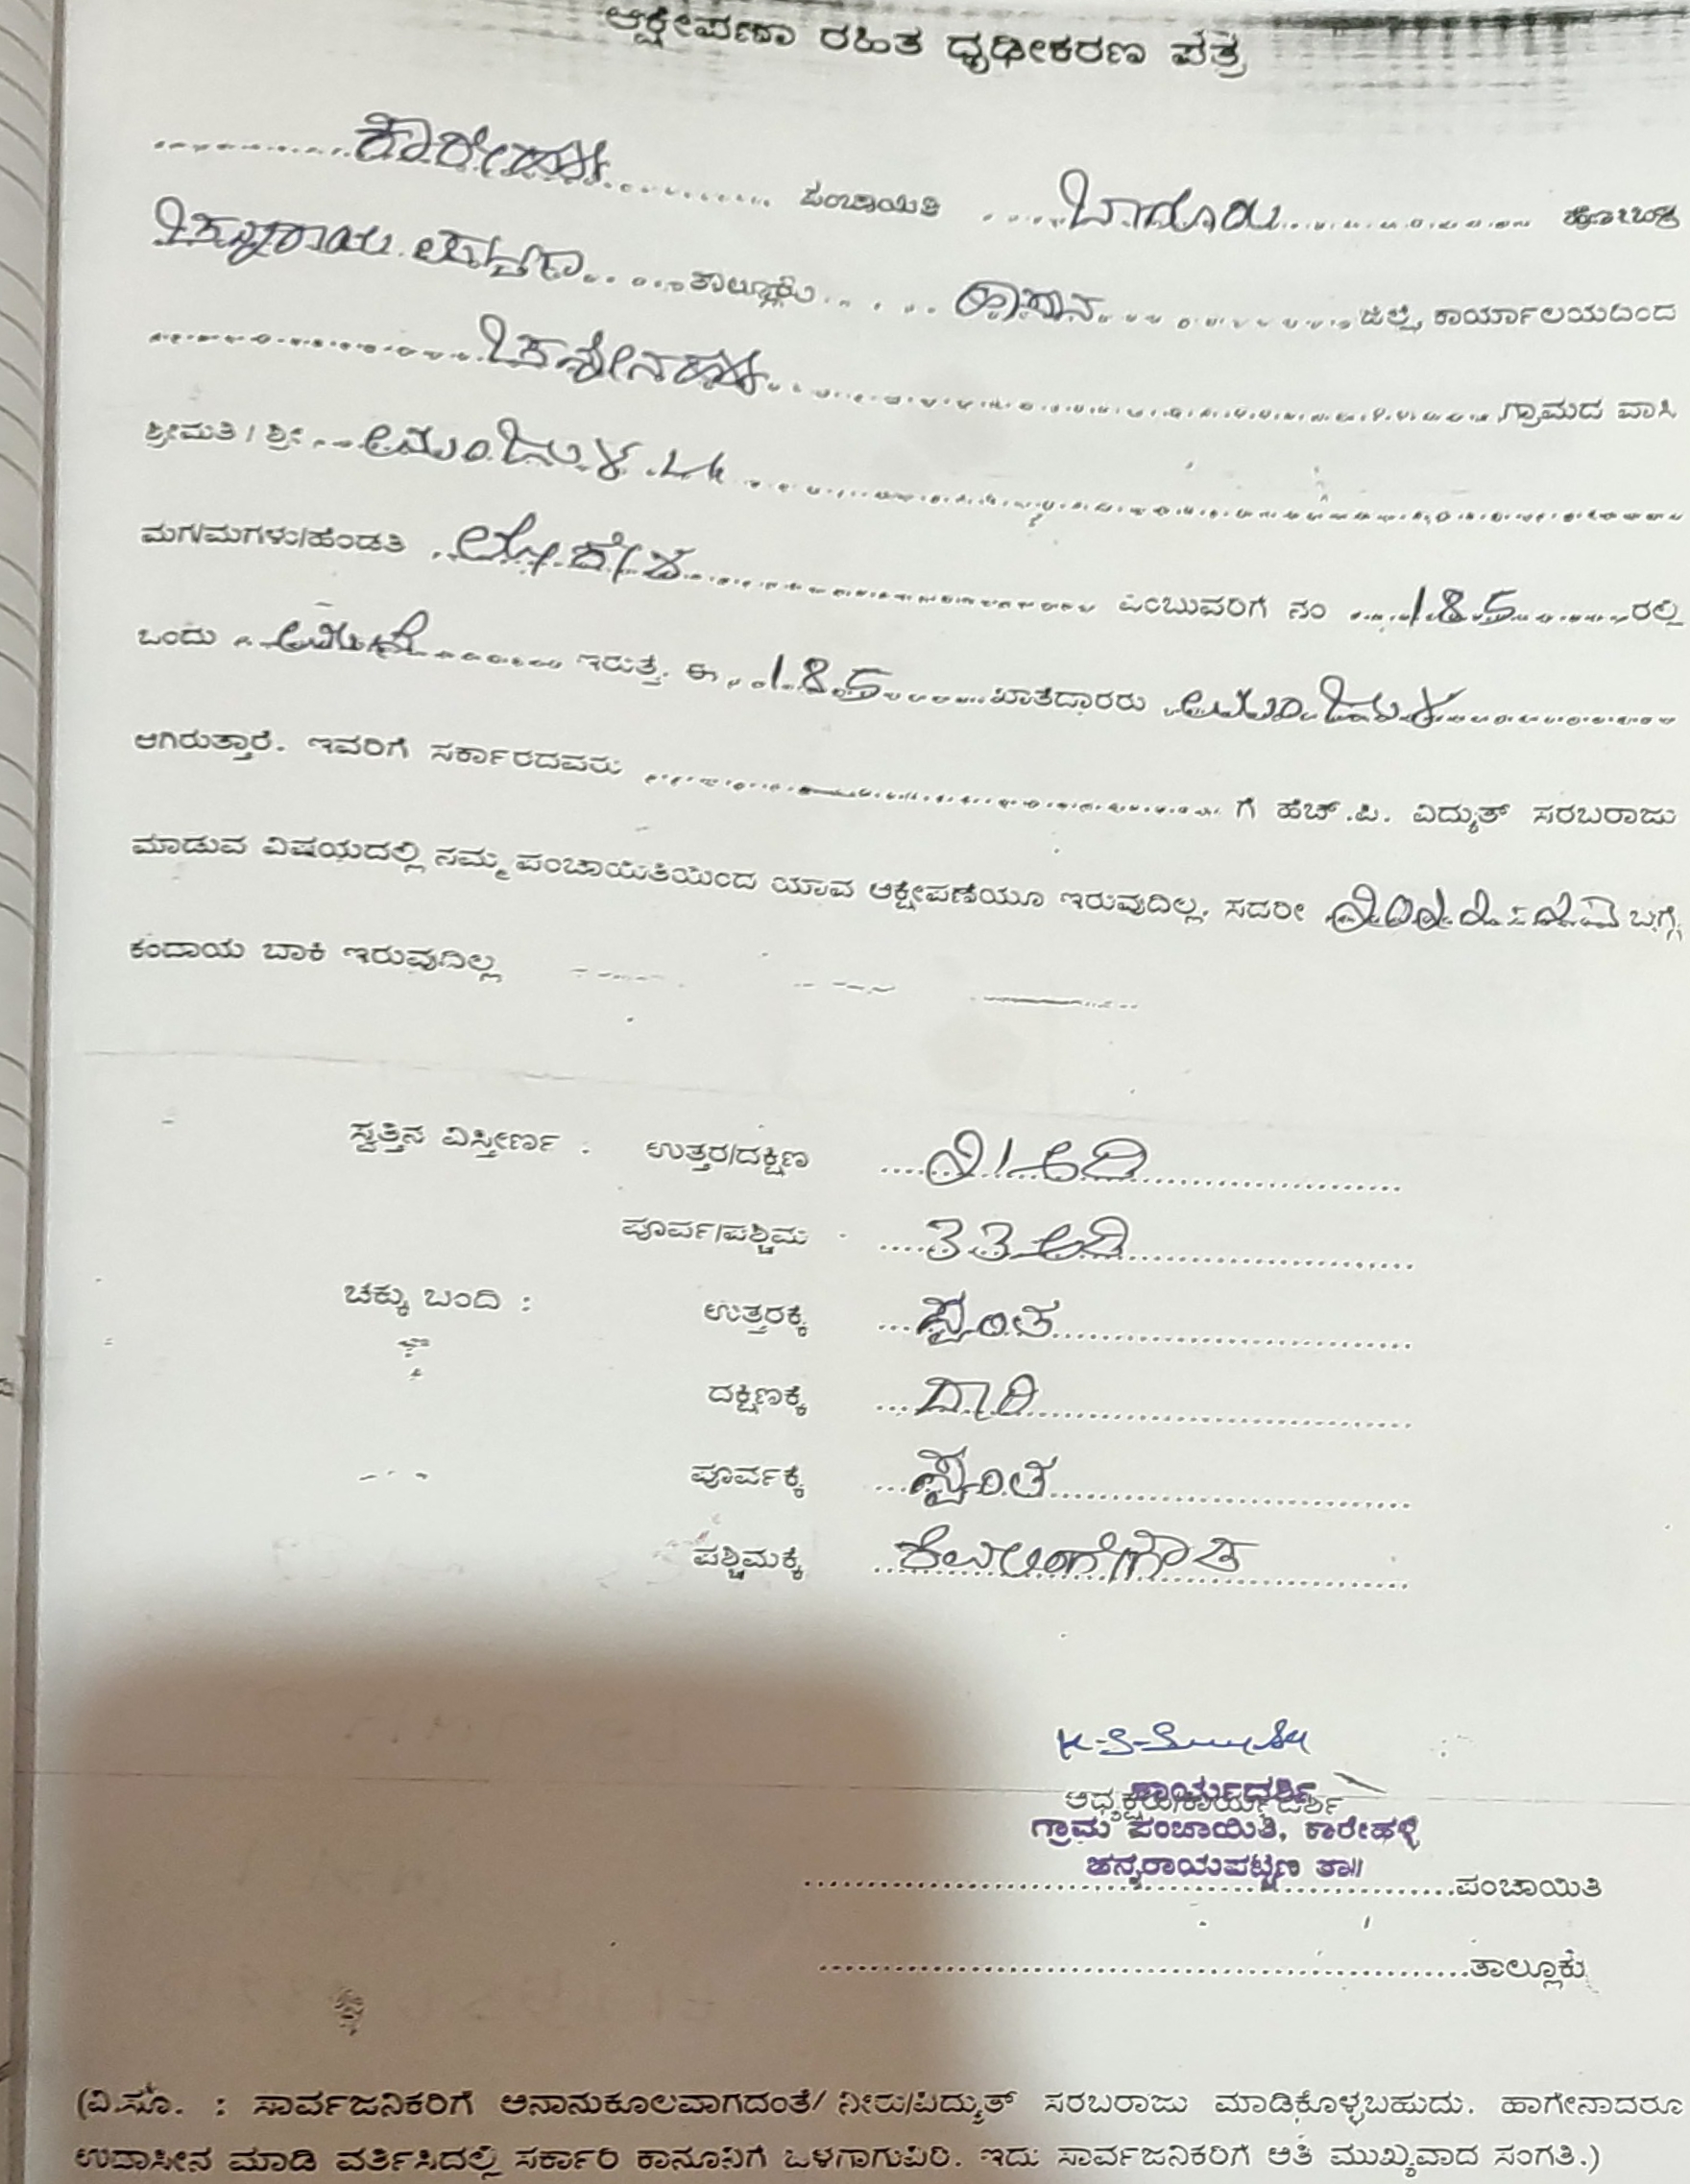 ಆಕ್ಷೇಪಣಾ ರಹಿತ ಧೃಢೀಕರಣ ಪತ್ರ
ಕಾರೇಹಳ್ಳಿ ಪಂಚಾಯಿತಿ ಬಾಗೂರು ಹೋಬಳಿ
ಚನ್ನರಾಯಪಟ್ಟಣ ತಾಲ್ಲೂಕು ಹಾಸನ ಜಿಲ್ಲೆ, ಕಾರ್ಯಾಲಯದಿಂದ
ಗ್ರಾಮದ ವಾಸಿ
ಶ್ರೀಮತಿ / ಶ್ರೀ ಮಂಜುಳ
ಮಗ/ಮಗಳು/ಹೆಂಡತಿ ಲೋಕೇಶ ಎಂಬುವರಿಗೆ ನಂ 185 ರಲ್ಲಿ
ಒಂದು ಮನೆ ಇರುತ್ತೆ. ಈ 185 ಖಾತೆದಾರರು ಮಂಜುಳ
ಆಗಿರುತ್ತಾರೆ. ಇವರಿಗೆ ಸರ್ಕಾರದವರು ಗೆ ಹೆಚ್.ಪಿ. ವಿದ್ಯುತ್ ಸರಬರಾಜು
ಮಾಡುವ ವಿಷಯದಲ್ಲಿ ನಮ್ಮ ಪಂಚಾಯಿತಿಯಿಂದ ಯಾವ ಆಕ್ಷೇಪಣೆಯೂ ಇರುವುದಿಲ್ಲ. ಸದರೀ ಬಗ್ಗೆ
ಕಂದಾಯ ಬಾಕಿ ಇರುವುದಿಲ್ಲ
ಸ್ವತ್ತಿನ ವಿಸ್ತೀರ್ಣ : ಉತ್ತರ/ದಕ್ಷಿಣ 21 ಅಡಿ
ಪೂರ್ವ/ಪಶ್ಚಿಮ 33 ಅಡಿ
ಚಕ್ಕು ಬಂದಿ : ಉತ್ತರಕ್ಕೆ ಸ್ವಂತ
ದಕ್ಷಿಣಕ್ಕೆ ದಾರಿ
ಪೂರ್ವಕ್ಕೆ ಸ್ವಂತ
ಪಶ್ಚಿಮಕ್ಕೆ
ಅಧ್ಯಕ್ಷರು/ಕಾರ್ಯದರ್ಶಿ
ಕಾರ್ಯದರ್ಶಿ
ಗ್ರಾಮ ಪಂಚಾಯಿತಿ, ಕಾರೇಹಳ್ಳಿ
ಚನ್ನರಾಯಪಟ್ಟಣ ತಾ॥
ಪಂಚಾಯಿತಿ
ತಾಲ್ಲೂಕು
(ವಿ.ಸೂ. : ಸಾರ್ವಜನಿಕರಿಗೆ ಅನಾನುಕೂಲವಾಗದಂತೆ/ ನೀರು/ವಿದ್ಯುತ್ ಸರಬರಾಜು ಮಾಡಿಕೊಳ್ಳಬಹುದು. ಹಾಗೇನಾದರೂ
ಉದಾಸೀನ ಮಾಡಿ ವರ್ತಿಸಿದಲ್ಲಿ ಸರ್ಕಾರಿ ಕಾನೂನಿಗೆ ಒಳಗಾಗುವಿರಿ. ಇದು ಸಾರ್ವಜನಿಕರಿಗೆ ಅತಿ ಮುಖ್ಯವಾದ ಸಂಗತಿ.)